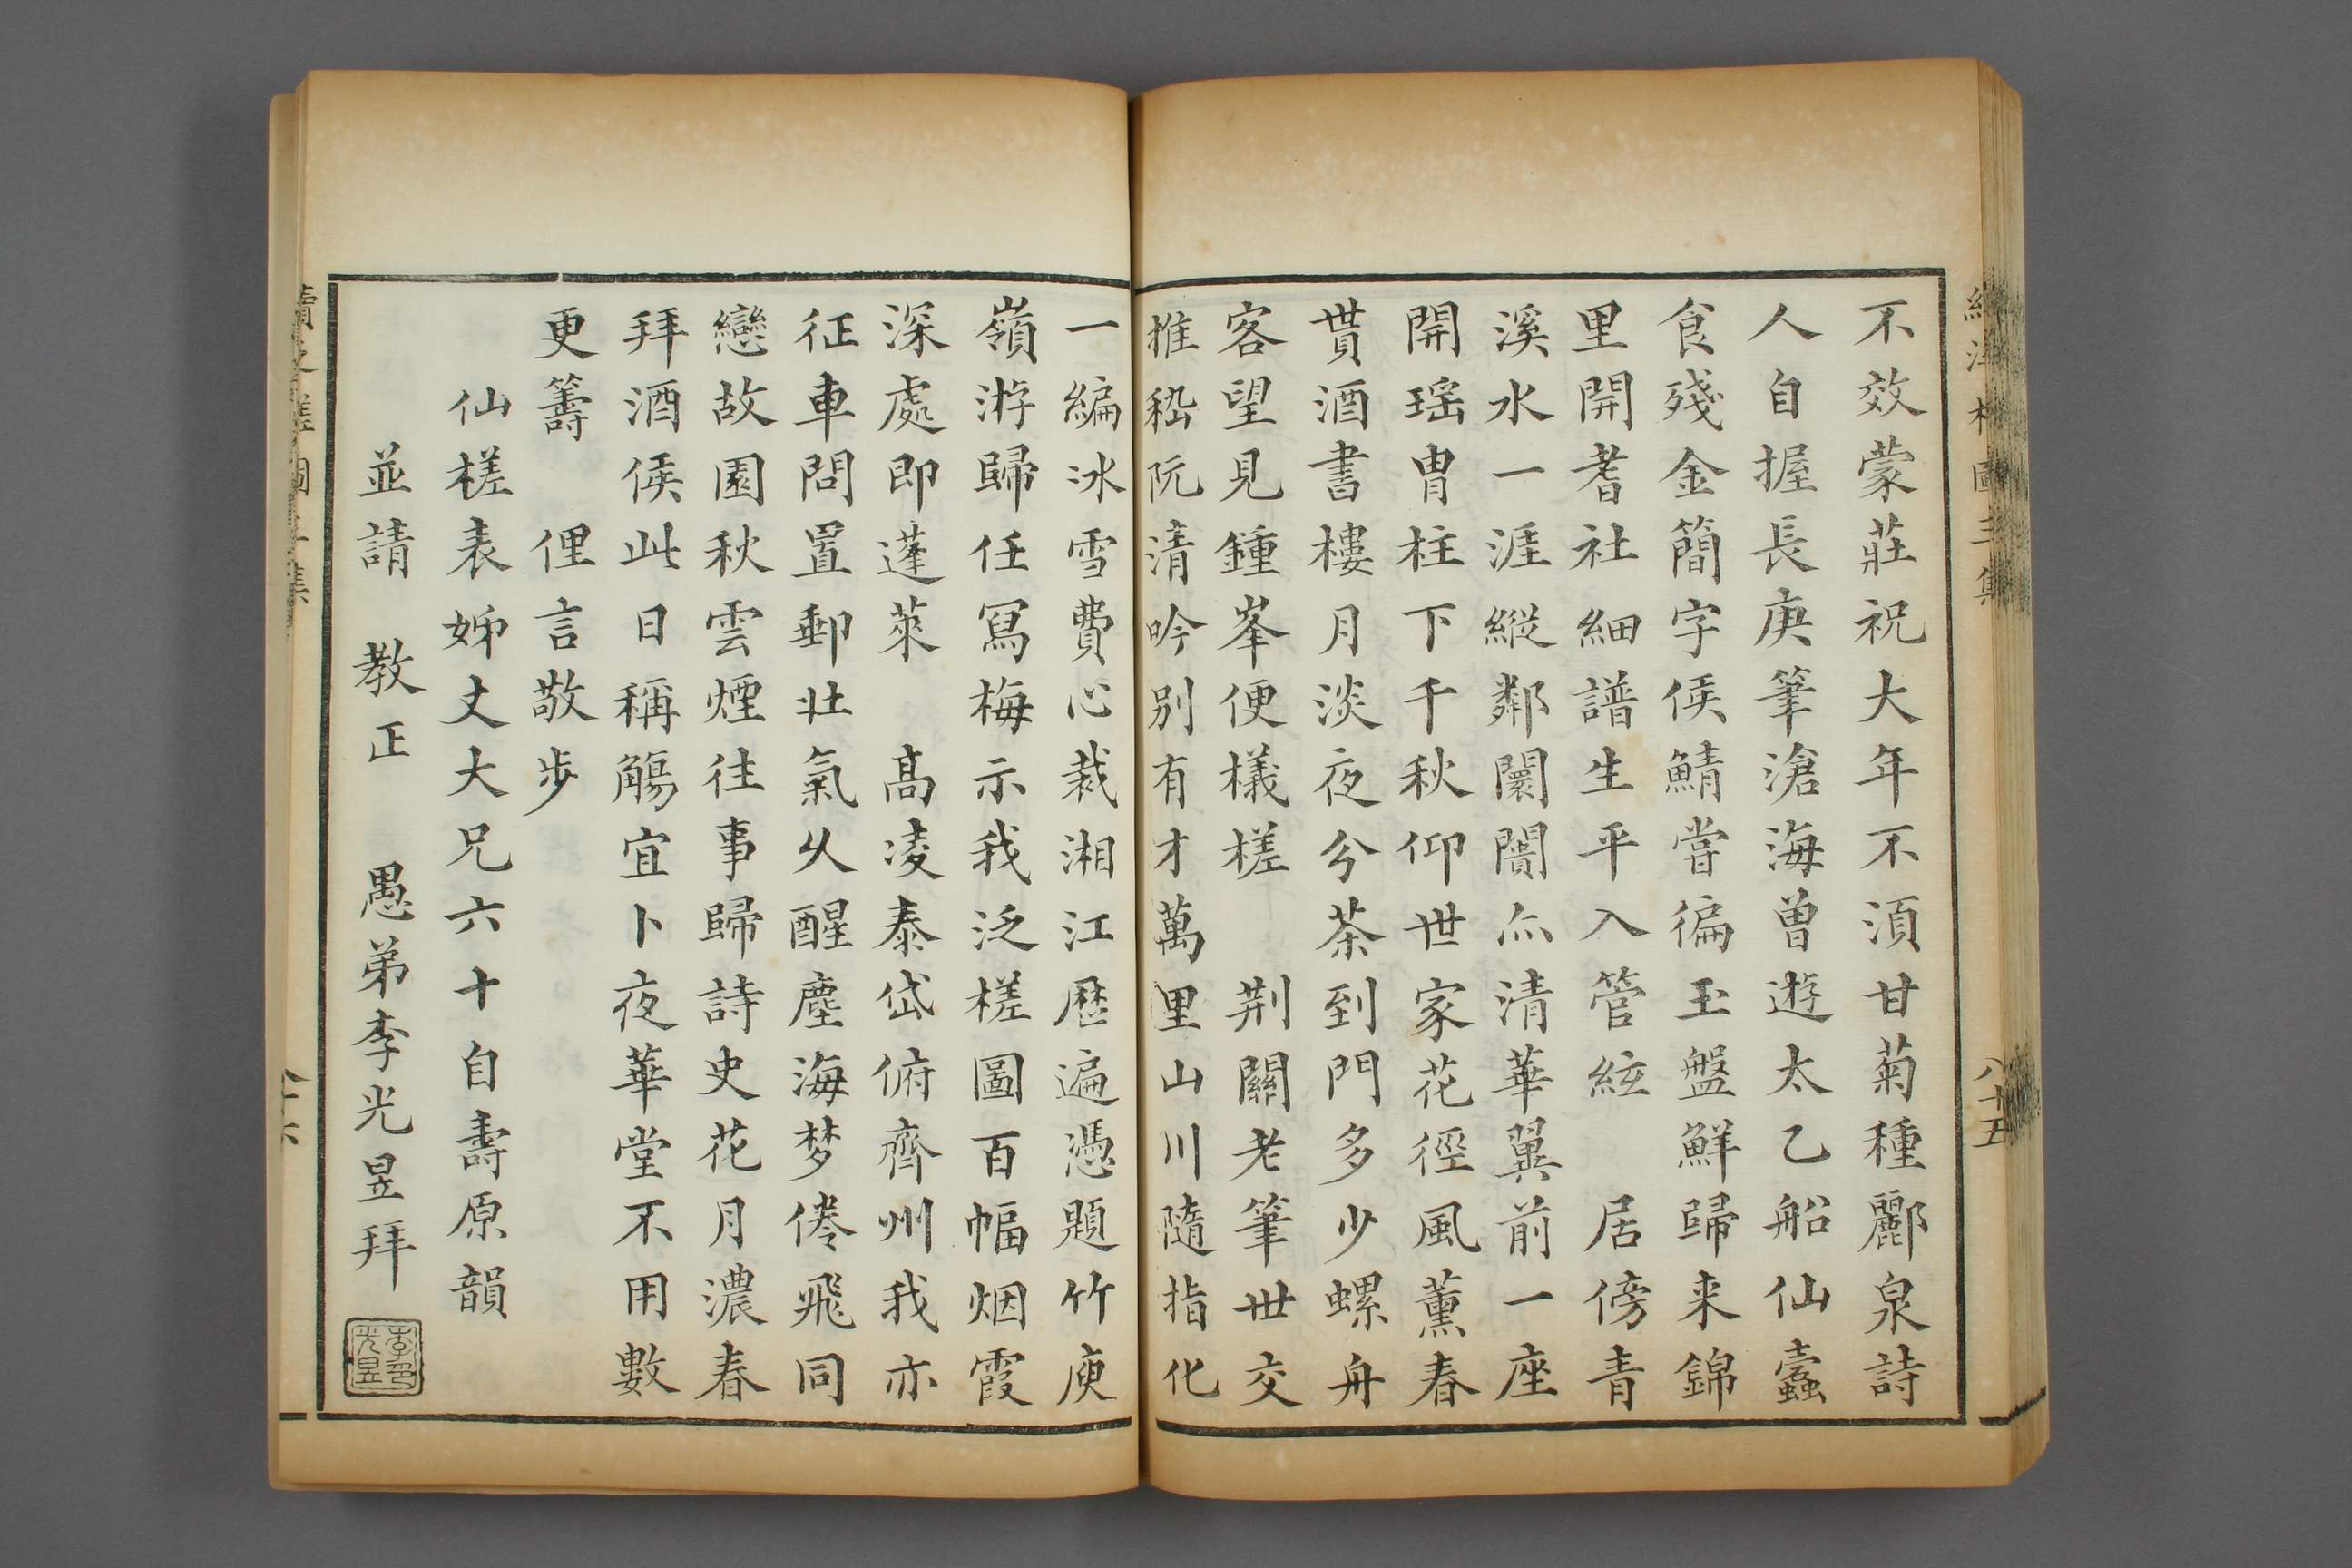 不效蒙莊祝大年不湏甘菊種酈泉詩
人自握長庚筆滄海曾遊太乙船仙蠹
食殘金簡字侯鯖嘗徧玉盤鮮歸来錦
里開耆社細譜生平入管絃　居傍青
溪水一涯縱鄰闤闠亦清華翼前一座
開瑶冑柱下千秋仰世家花徑風薰春
貰酒書樓月淡夜分茶到門多少螺舟
客望見鍾峯便檥槎　荆關老筆世交
推嵇阮清吟别有才萬里山川隨指化
一編冰雪費心裁湘江歷遍憑題竹庾
嶺游歸任冩梅示我泛槎圖百幅烟霞
深處即蓬萊　髙凌泰岱俯齊州我亦
征車問置郵壯氣乆醒塵海梦倦飛同
戀故園秋雲煙往事歸詩史花月濃春
拜酒侯此日稱觴宜卜夜華堂不用數
更籌　俚言敬步
仙槎表姊丈大兄六十自壽原韻
並請　教正　愚弟李光昱拜
李光昱印
八十五